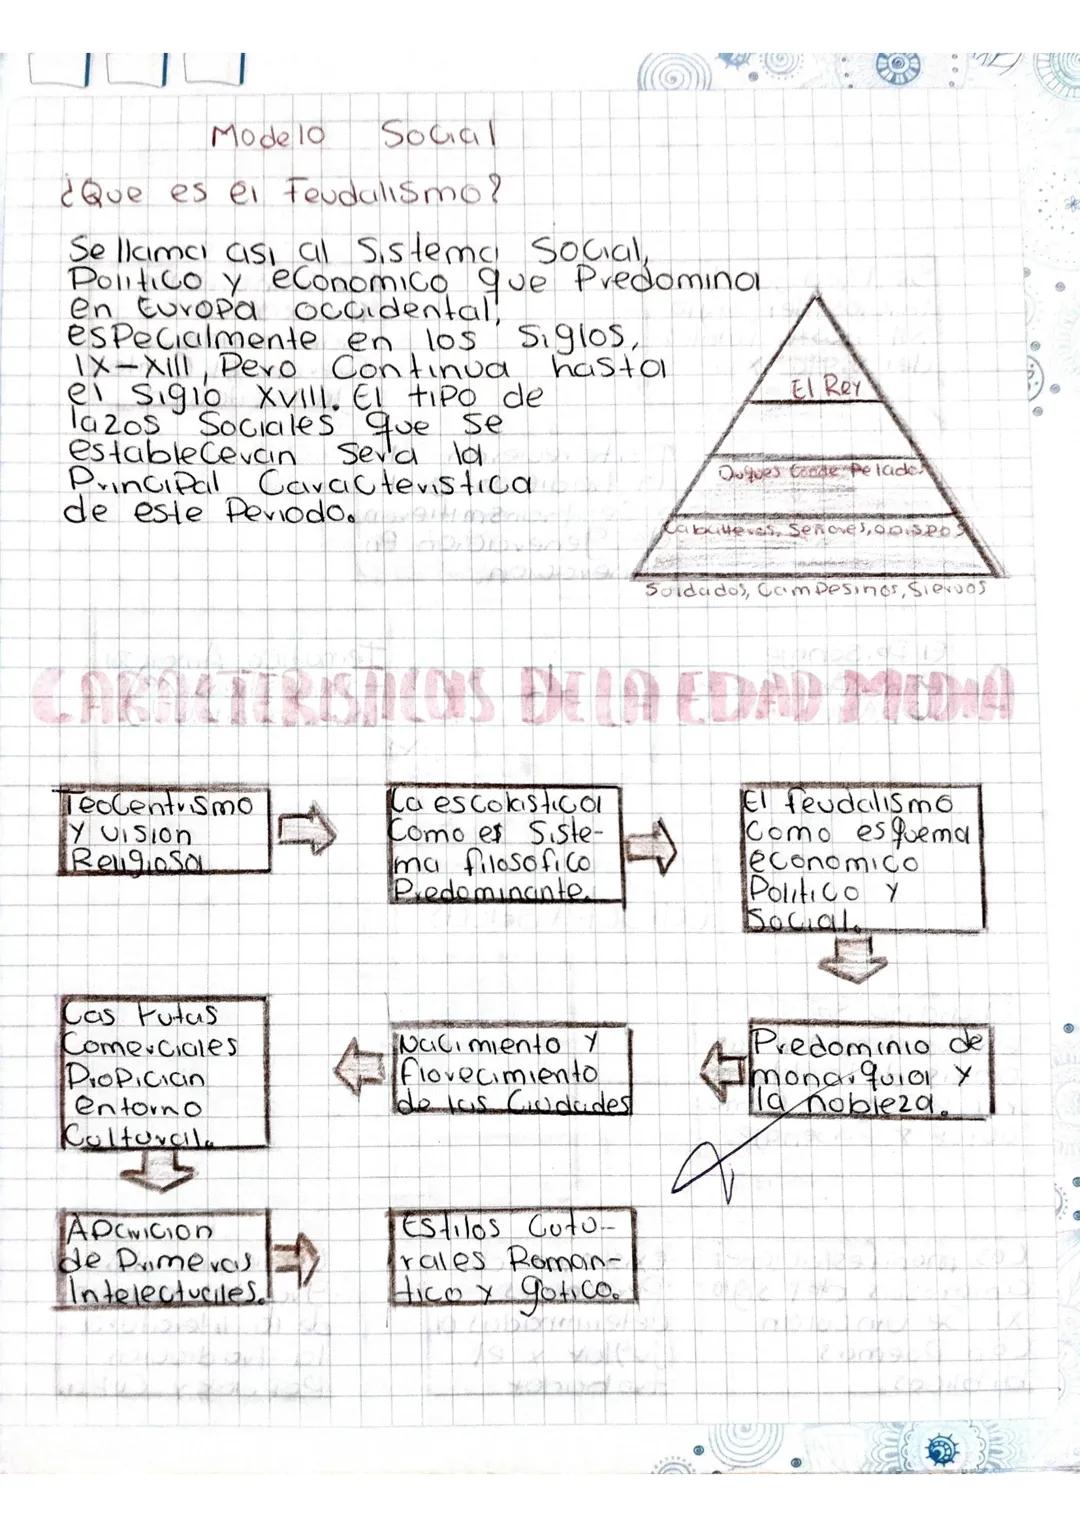 Modelo Social
¿Que es el Feudalismo?
Se llama asi al Sistema Social,
Politico y economico que Predomina
en Europa occidental,
especialmente en los Siglos,
IX-XIII, Pero Continua hasta
el Siglo XVIII. El tipo de
lazos Sociales que se
estableceran Sera la
Principal Caracteristica
de este Periodo.
El Rey
Duques Conde Pelados
Caballeros, Señores, obispos
Soldados, Campesinos, Siervos
CARACTERISTICAS DE LA EDAD MEDIA
TeoCentrismo
y vision
Religiosa
La escolastica
Como es Siste-
ma filosofico
Predominante.
El feudalismo
Como esquema
economico
Politico y
Social.
Predominio de
monarquia y
la nobleza.
Nacimiento y
florecimiento
de las Ciudades
Las rutas
Comerciales
Propician
entorno
Cultural.
Aparicion
de Primeras
Intelectuales.
Estilos Cutu-
rales Roman-
tico y gotico.